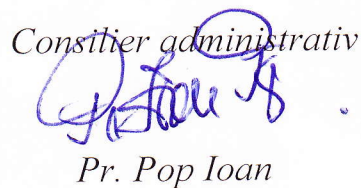 Consilier administrativ
Pr. Pop Ioan